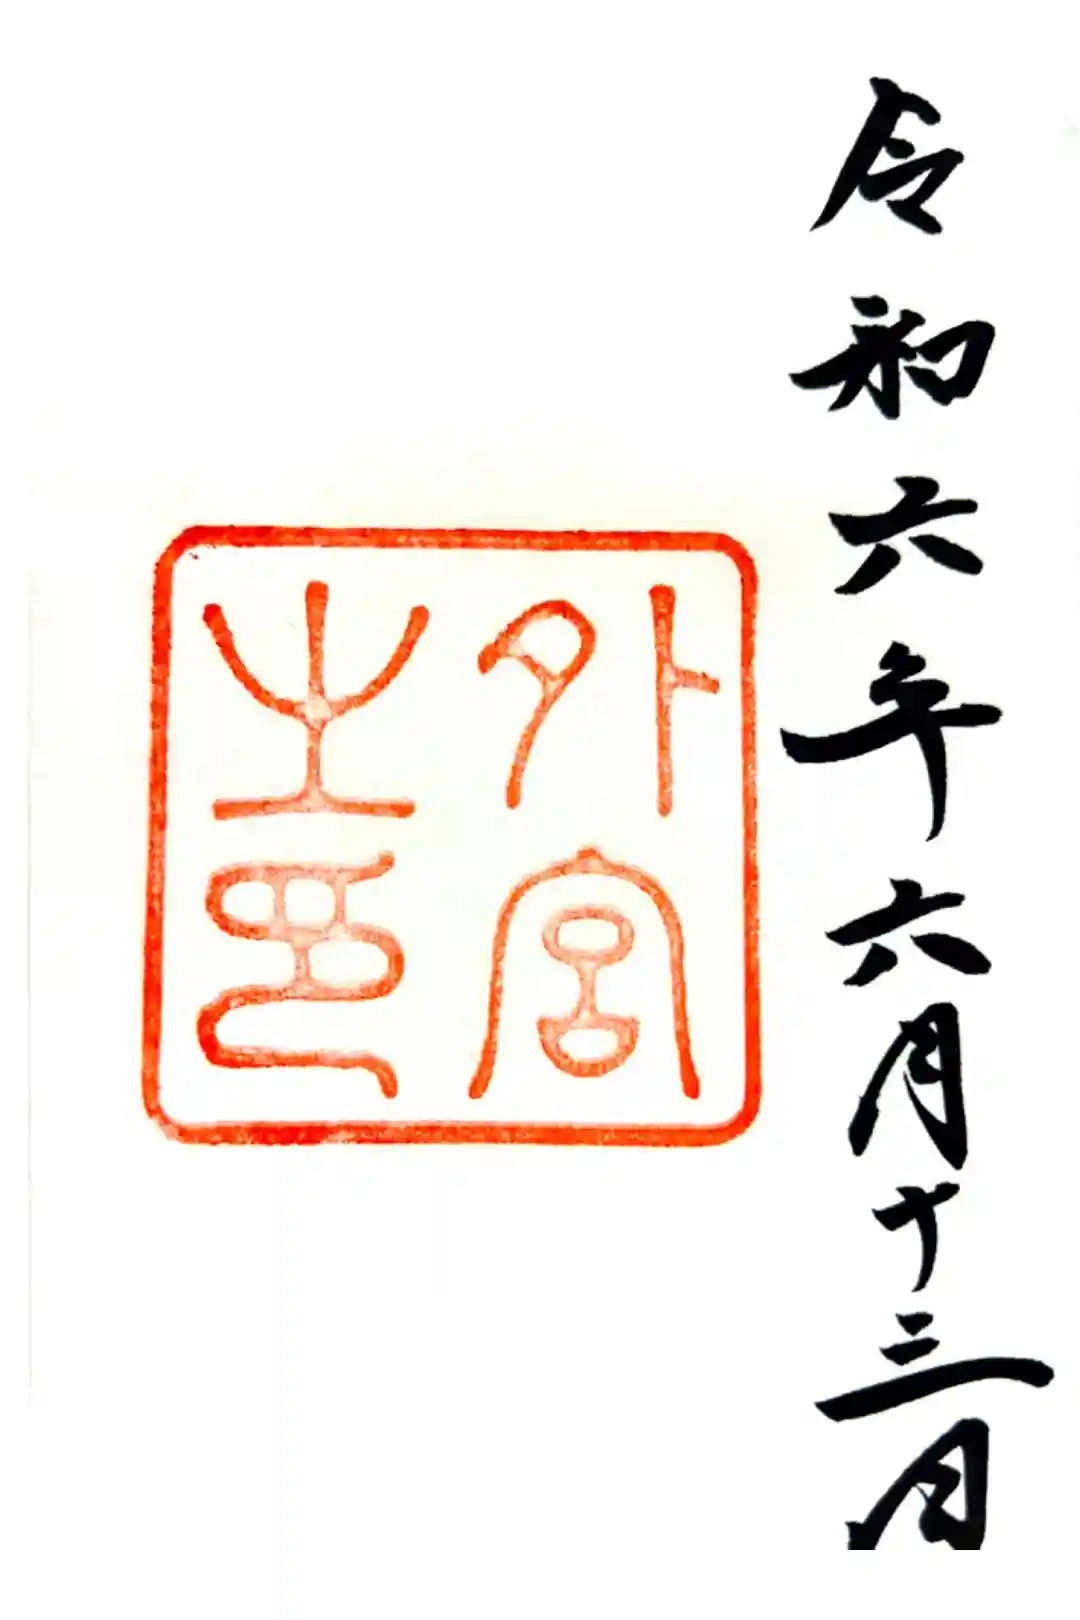 令和六年六月十三日
外宮
之印